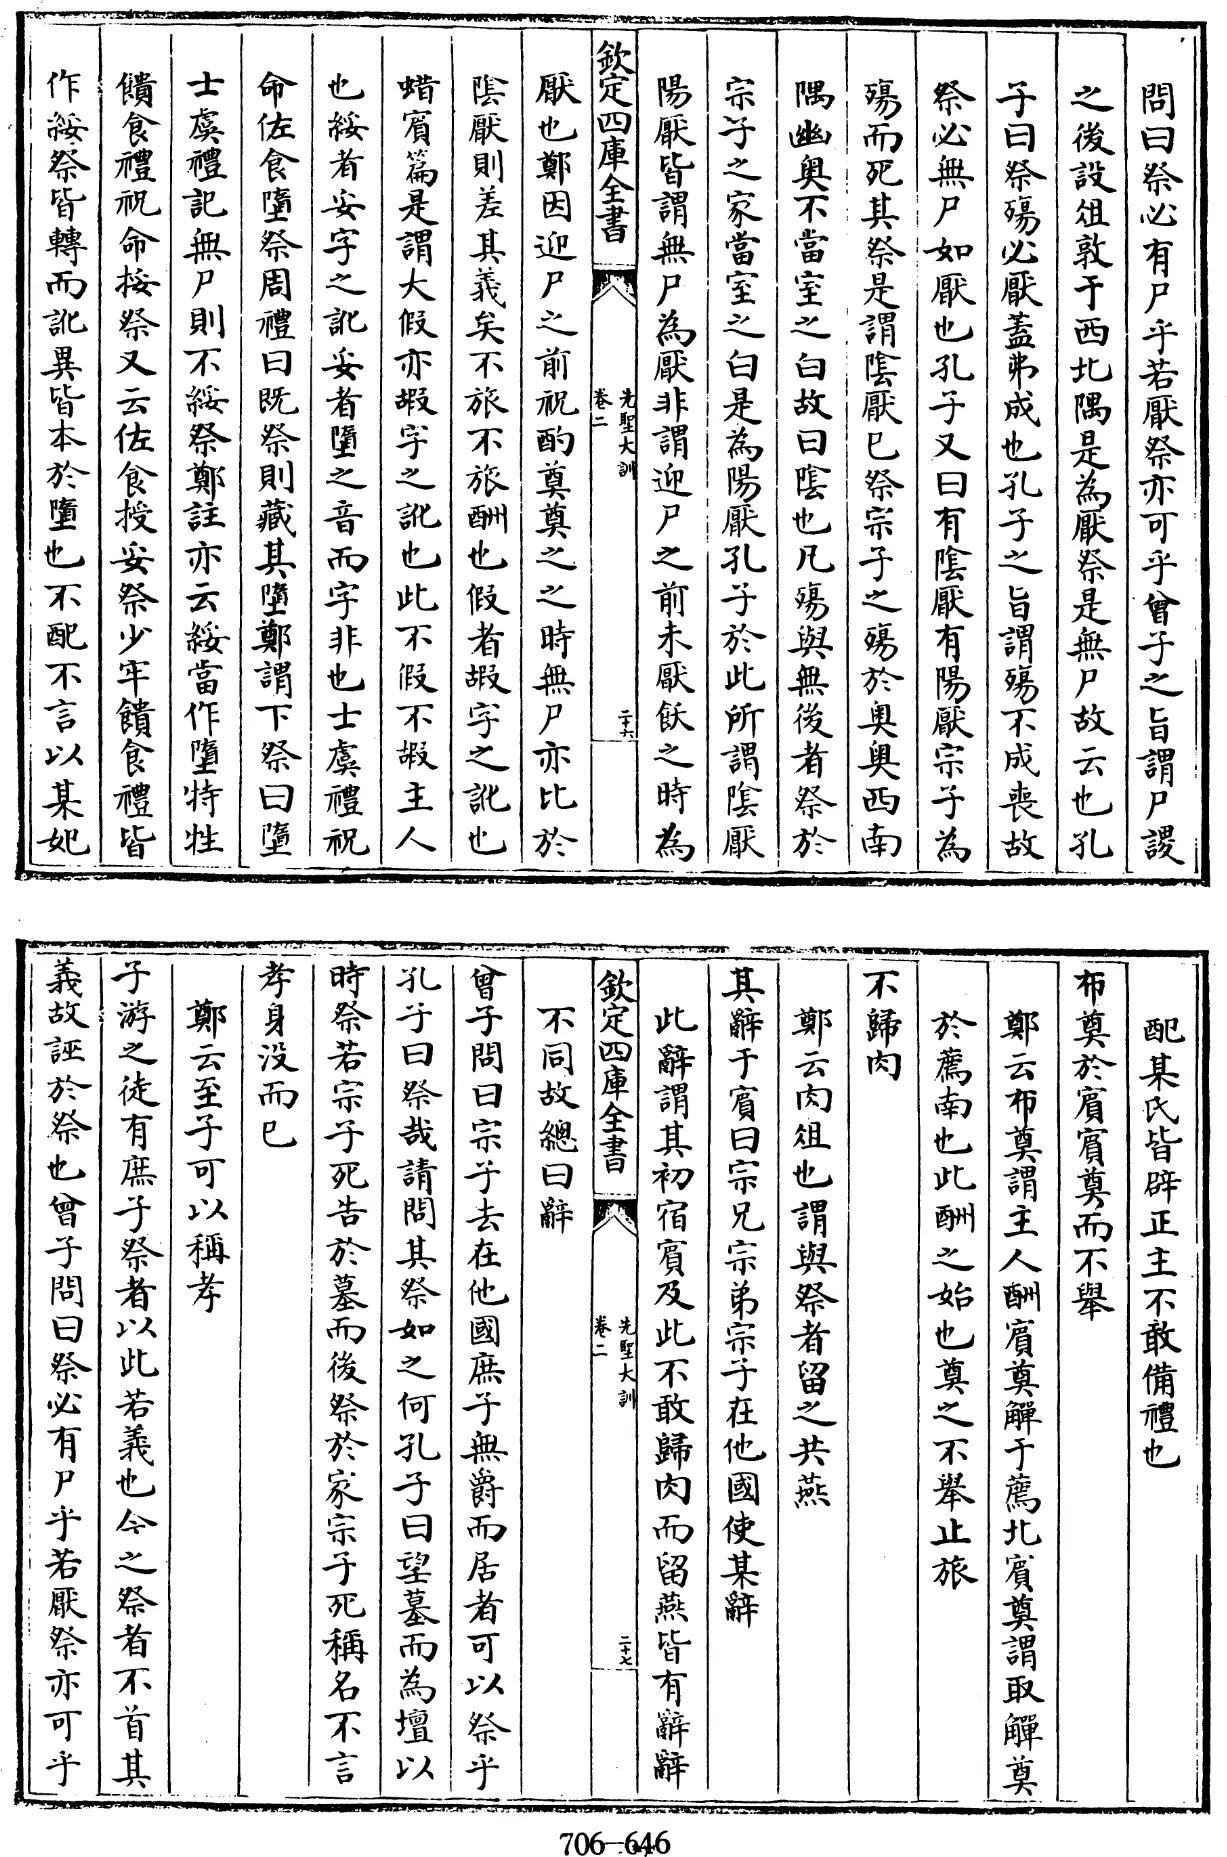 問曰祭必有尸乎若厭祭亦可乎曾子之旨謂尸謖
之後設俎敦于西北隅是為厭祭是無尸故云也孔
子曰祭殤必厭蓋弗成也孔子之旨謂殤不成喪故
祭必無尸如厭也孔子又曰有陰厭有陽厭宗子為
殤而死其祭是謂陰厭已祭宗子之殤於奧奧西南
隅幽奧不當室之白故曰陰也凡殤與無後者祭於
宗子之家當室之白是為陽厭孔子於此所謂陰厭
陽厭皆謂無尸為厭非謂迎尸之前未厭飫之時為
欽定四庫全書
先聖大訓
卷二
二十六
厭也鄭因迎尸之前祝酌奠奠之之時無尸亦比於
陰厭則差其義矣不旅不旅酬也假者嘏字之訛也
蜡賓篇是謂大假亦嘏字之訛也此不假不嘏主人
也綏者妥字之訛妥者墮之音而字非也士虞禮祝
命佐食墮祭周禮曰既祭則藏其墮鄭謂下祭曰墮
士虞禮記無尸則不綏祭鄭註亦云綏當作墮特牲
饋食禮祝命挼祭又云佐食授妥祭少牢饋食禮皆
作綏祭皆轉而訛異皆本於墮也不配不言以某妃
配某氏皆辟正主不敢備禮也
布奠於賓賓奠而不舉
鄭云布奠謂主人酬賓奠觶于薦北賓奠謂取觶奠
於薦南也此酬之始也奠之不舉止旅
不歸肉
鄭云肉俎也謂與祭者留之共燕
其辭于賓曰宗兄宗弟宗子在他國使某辭
此辭謂其初宿賓及此不敢歸肉而留燕皆有辭辭
欽定四庫全書
先聖大訓
卷二
二十七
不同故總曰辭
曾子問曰宗子去在他國庶子無爵而居者可以祭乎
孔子曰祭哉請問其祭如之何孔子曰望墓而為壇以
時祭若宗子死告於墓而後祭於家宗子死稱名不言
孝身没而已
鄭云至子可以稱孝
子游之徒有庶子祭者以此若義也今之祭者不首其
義故誣於祭也曾子問曰祭必有尸乎若厭祭亦可乎
706-646